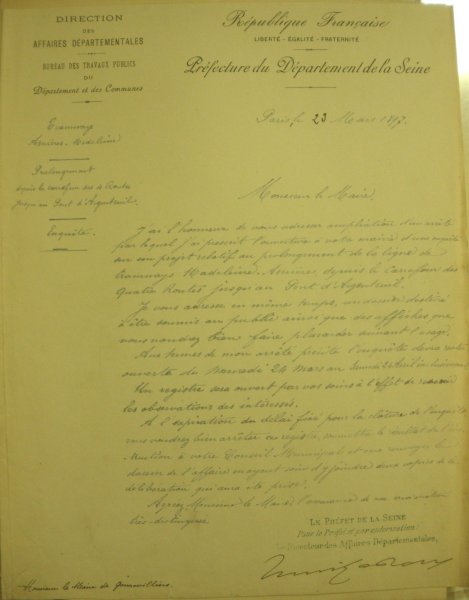 DIRECTION
DES
AFFAIRES DÉPARTEMENTALES
BUREAU DES TRAVAUX PUBLICS
DU
Département et des Communes
République Française
LIBERTÉ - ÉGALITÉ - FRATERNITÉ
Préfecture du Département de la Seine
Paris, le 23 Mars 1897.
Tramways
Asnières-Madeleine
Prolongement
depuis le carrefour des 4 Routes
jusqu'au Pont d'Argenteuil.
Enquête.
Monsieur le Maire,
J'ai l'honneur de vous adresser ampliation d'un arrêté
par lequel j'ai prescrit l'ouverture à votre mairie d'une enquête
sur son projet relatif au prolongement de la ligne de
tramways Madeleine-Asnières, depuis le Carrefour des
Quatre Routes jusqu'au Pont d'Argenteuil.
Je vous adresse en même temps, un dossier destiné
à être soumis au public ainsi que des affiches que
vous voudrez bien faire placarder suivant l'usage.
Aux termes de mon arrêté précité l'enquête devra rester
ouverte du Mercredi 24 Mars au
Un registre sera ouvert par vos soins à l'effet de recevoir
les observations des intéressés.
A l'expiration du délai fixé pour la clôture de l'enquête
vous voudrez bien arrêter ce registre, soumettre le résultat de l'
à votre Conseil Municipal et me renvoyer le
dossier de l'affaire en ayant soin d'y joindre deux copies de la
délibération qui aura été prise.
Agréez, Monsieur le Maire, l'assurance de ma considération
très distinguée.
LE PRÉFET DE LA SEINE
Pour le Préfet et par autorisation:
Le Directeur des Affaires Départementales,
Monsieur le Maire de Gennevilliers.